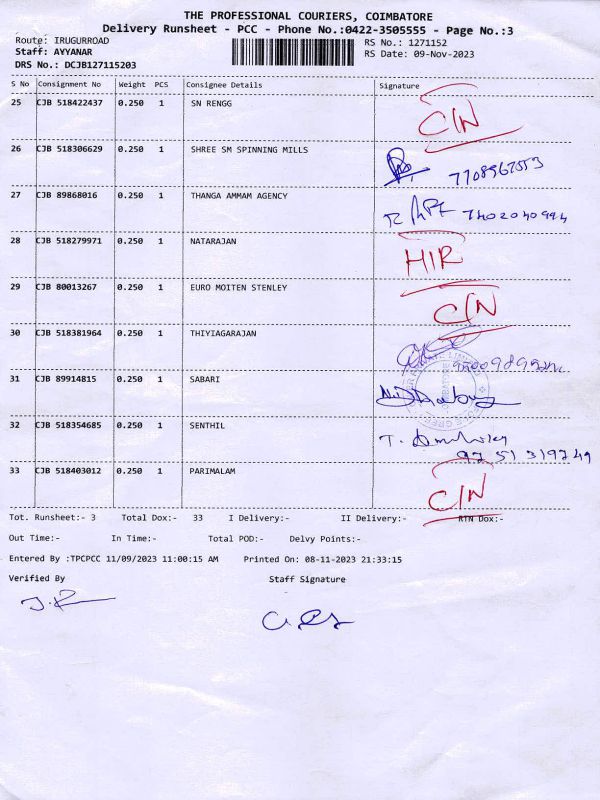 THE PROFESSIONAL COURIERS, COIMBATORE
Delivery Runsheet - PCC - Phone No.:0422-3505555 - Page No.:3
Route: IRUGURROAD
RS No.: 1271152
Staff: AYYANAR
RS Date: 09-Nov-2023
DRS No.: DCJB127115203
S No Consignment No Weight PCS Consignee Details Signature
25 CJB 518422437 0.250 1 SN RENGG C/N
26 CJB 518306629 0.250 1 SHREE SM SPINNING MILLS
27 CJB 89868016 0.250 1 THANGA AMMAM AGENCY
28 CJB 518279971 0.250 1 NATARAJAN HIR
29 CJB 80013267 0.250 1 EURO MOITEN STENLEY C/N
30 CJB 518381964 0.250 1 THIYIAGARAJAN
31 CJB 89914815 0.250 1 SABARI
32 CJB 518354685 0.250 1 SENTHIL T.
97 51 319749
33 CJB 518403012 0.250 1 PARIMALAM C/N
Tot. Runsheet:- 3 Total Dox:- 33 I Delivery:- II Delivery:- RTN Dox:-
Out Time:- In Time:- Total POD:- Delvy Points:-
Entered By :TPCPCC 11/09/2023 11:00:15 AM Printed On: 08-11-2023 21:33:15
Verified By Staff Signature